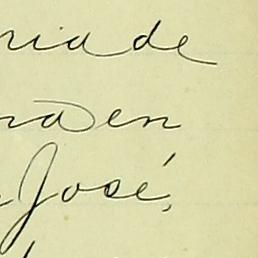 ria de
na en
José,